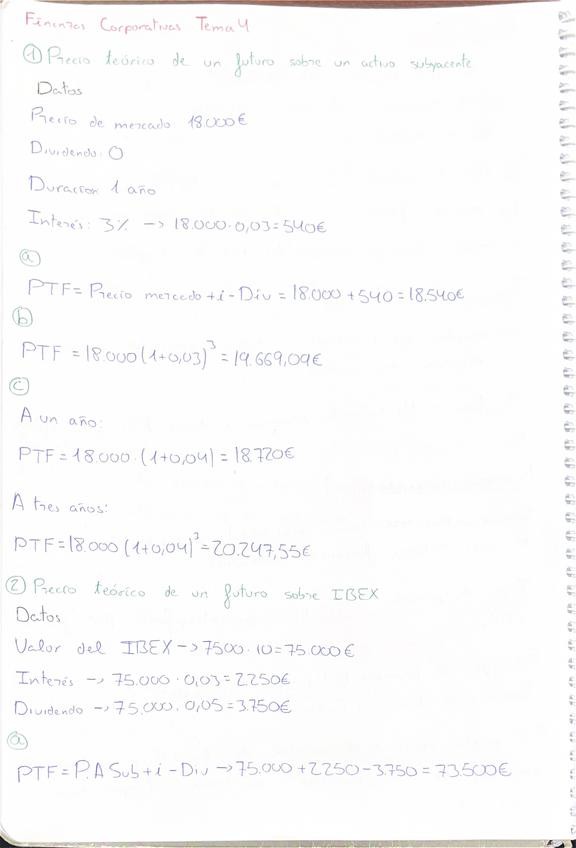 Finanzas Corporativas Tema 4
① Precio teórico de un futuro sobre un activo subyacente
Datos
Precio de mercado 18.000€
Dividendo: 0
Duración 1 año
Interés: 3% -> 18.000·0,03=540€
ⓐ
PTF= Precio mercado+i-Div = 18.000 +540=18.540€
ⓑ
PTF = 18.000(1+0,03)³=19.669,09€
ⓒ
A un año:
PTF=18.000·(1+0,04)=18.720€
A tres años:
PTF=18.000(1+0,04)³=20.247,55€
② Precio teórico de un futuro sobre IBEX
Datos
Valor del IBEX -> 7500·10=75.000€
Interés -> 75.000·0,03=2250€
Dividendo -> 75.000·0,05=3.750€
ⓐ
PTF=P.A Sub+i-Div -> 75.000+2250-3.750=73.500€